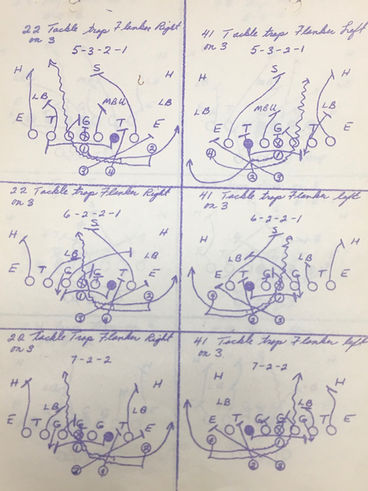 22 Tackle trap Flanker Right
on 3
5-3-2-1
H
S
H
LB
MBU
LB
E
T
G
T
E
41 Tackle trap Flanker Left
on 3
5-3-2-1
H
S
H
LB
MBU
LB
E
T
G
T
E
22 Tackle trap Flanker Right
on 3
6-2-2-1
S
H
H
LB
LB
E
T
G
G
T
E
41 Tackle trap Flanker left
on 3
6-2-2-1
S
H
H
LB
LB
E
T
G
G
T
E
22 Tackle Trap Flanker Right
on 3
7-2-2
H
H
LB
LB
E
T
G
G
T
E
41 Tackle Trap Flanker left
on 3
7-2-2
H
H
LB
LB
E
T
G
G
T
E